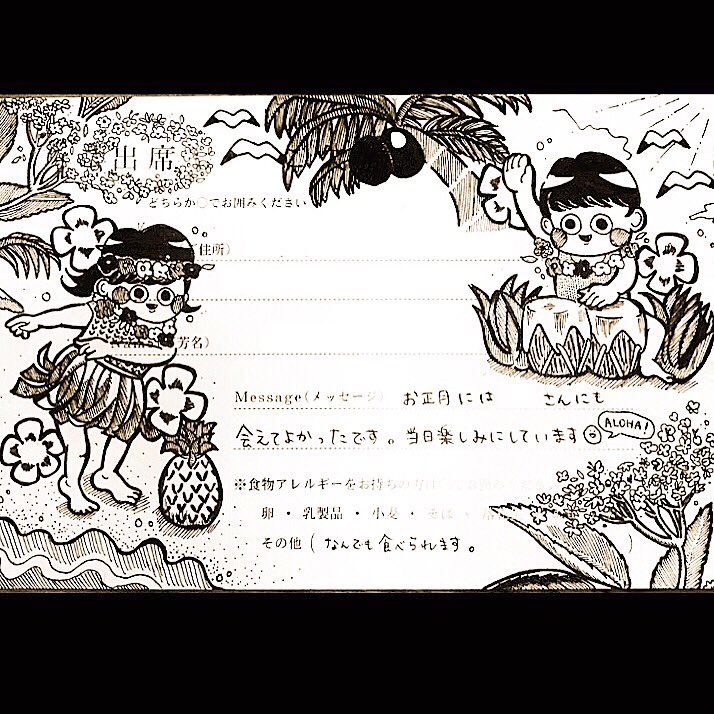 出席
どちらか○でお囲みください
住所)
芳名)
Message(メッセージ) お正月には さんにも
会えてよかったです。当日楽しみにしています☺ ALOHA!
※食物アレルギーをお持ちの方は
卵 ・ 乳製品 ・ 小麦 ・ そば ・
その他 ( なんでも食べられます。 )